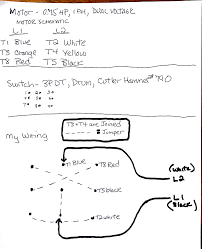 Motor - 0.75 HP, 1 PH, DUAL VOLTAGE
MOTOR SCHEMATIC
L1 L2
T1 Blue T2 White
T3 Orange T4 Yellow
T8 Red T5 Black
Switch - 3PDT, Drum, Cutler Hammer
1o 2o
3o 4o
My Wiring
T3+T4 are Joined
----- = Jumper
T1 Blue
T8 Red
(White)
L2
T5 Black
L1
(Black)
T2 White